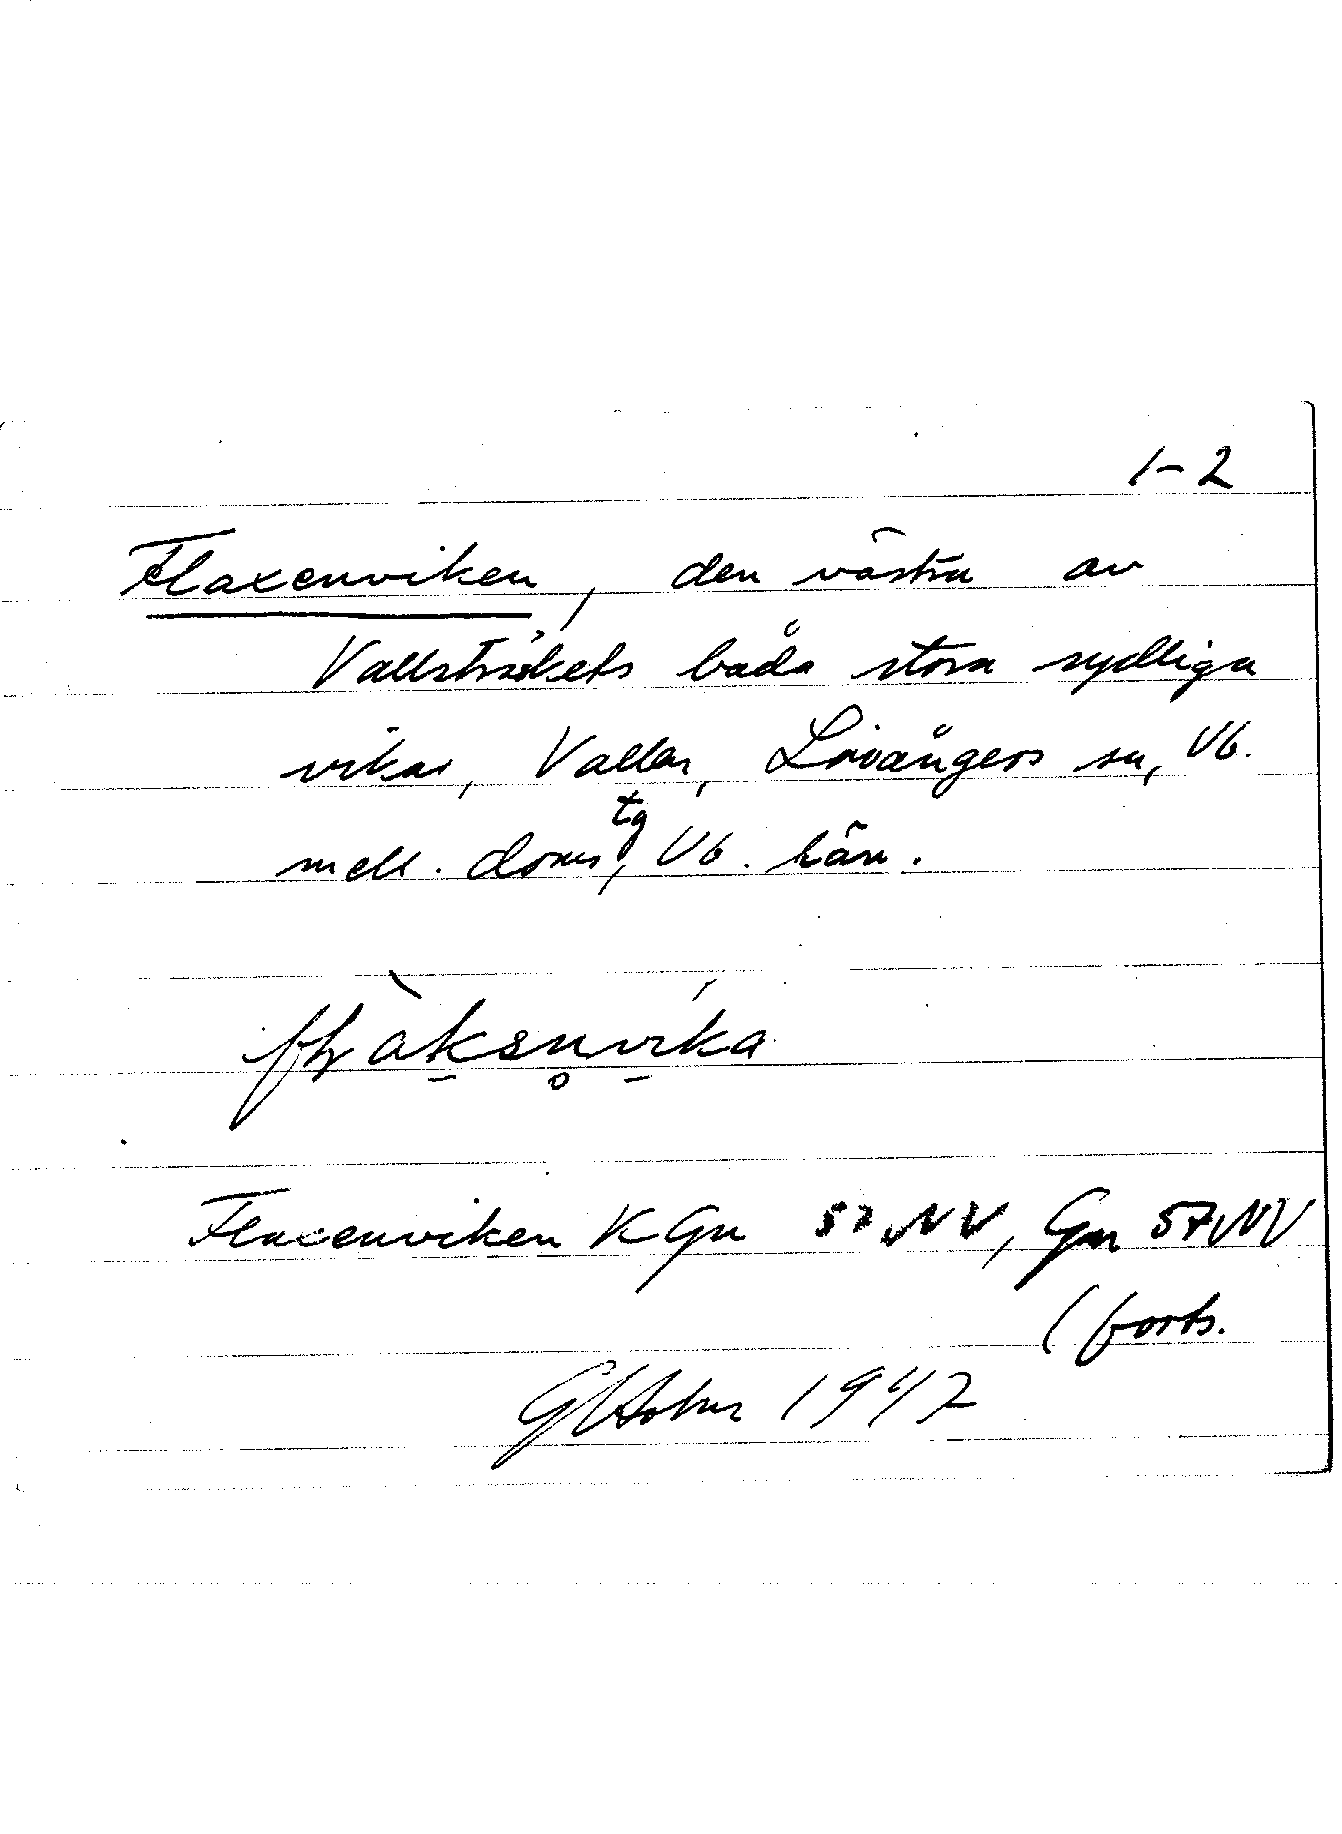 1-2
Flaxenviken, den västra av
Vallsträskets båda stora sydliga
vikar, Vallen, Lövångers sn, Vb.
mell. doms
tg, Vb. län.
Flaxenviken K Gn 57 NV, Gn 57 NV
(forts.
1947